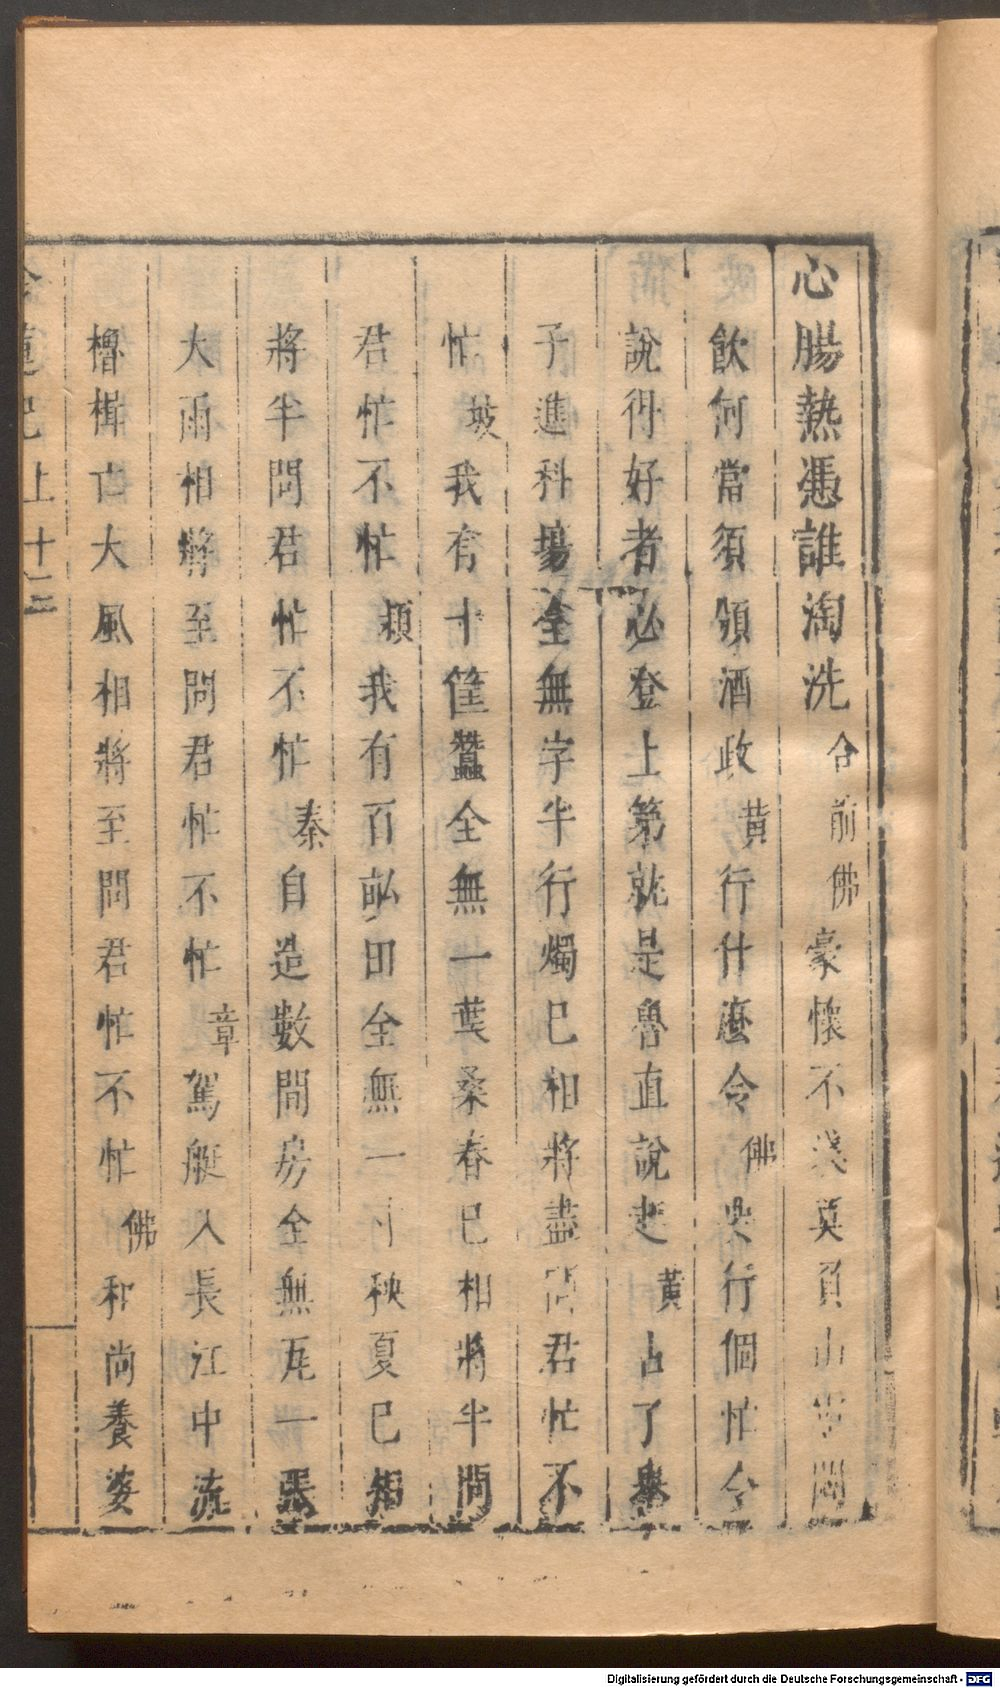 心腸熱憑誰淘洗合前佛豪懷不淺莫負山
飲何當須領酒政黃行什麼令佛與行個忙令
說得好者必登上第就是魯直說起黃占了舉
子進科場全無字半行燭已相將盡問君忙不
忙坡我有十筐蠶全無一葉桑春已相將半問
君忙不忙潁我有百畝田全無一寸秧夏已相
將半問君忙不忙秦自造數間房全無瓦一張
大雨相將至問君忙不忙章駕艇入長江中流
櫓楫亡大風相將至問君忙不忙佛和尚養婆
金蓮記上十二
Digitalisierung gefördert durch die Deutsche Forschungsgemeinschaft - DFG